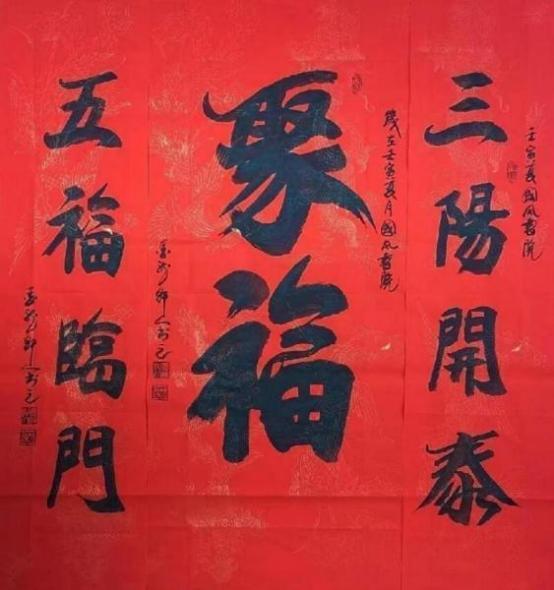 三陽開泰
壬寅夏國風書院
聚福
歲在壬寅夏月國風書院
五福臨門